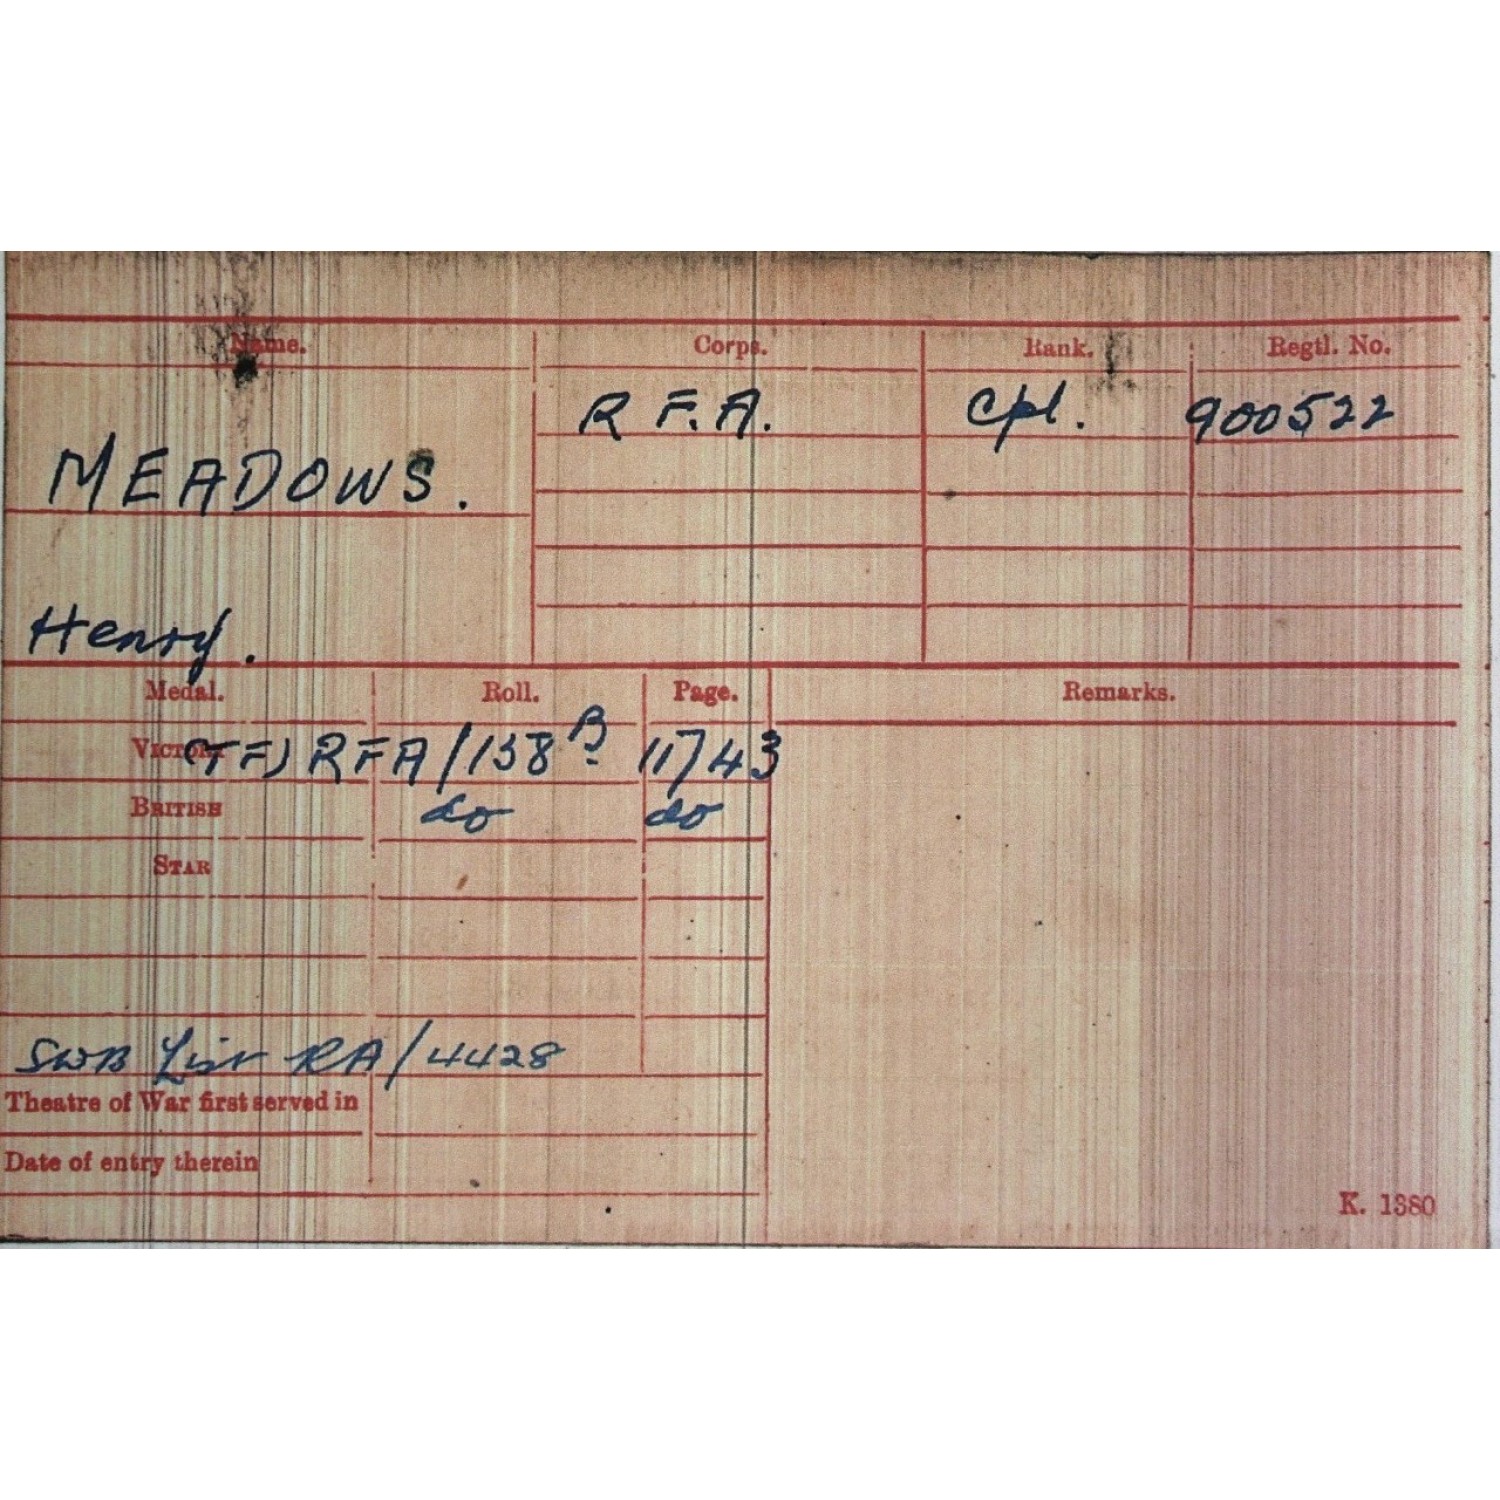 Name. Corps. Rank. Regtl. No.
R F.A. Cpl. 900522
MEADOWS.
Henry.
Medal. Roll. Page. Remarks.
VICTORY (TF) RFA/158 B 11743
BRITISH do do
STAR
SWB List RA/4428
Theatre of War first served in
Date of entry therein
K. 1380